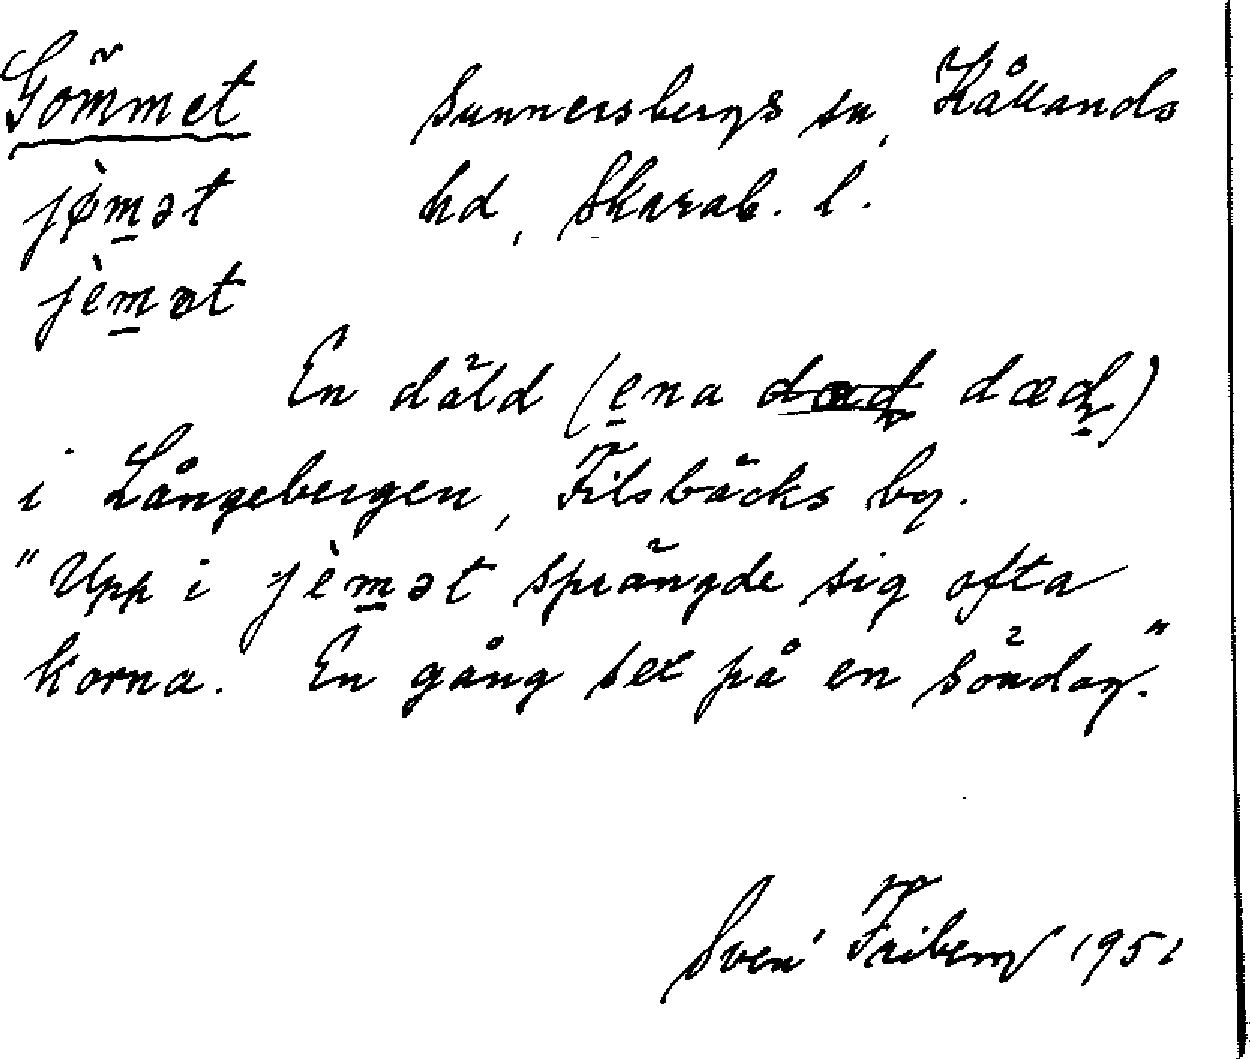 Gömmet Sunnersbergs sn, Kållands
jø̀m̲ət hd, Skarab. l.
jèm̲ət
En däld (e̲na dæd)
i Långebergen, Filsbäcks by.
"Upp i jèm̲ət sprängde sig ofta
korna. En gång sex på en söndag."
Sven Friberg 1951